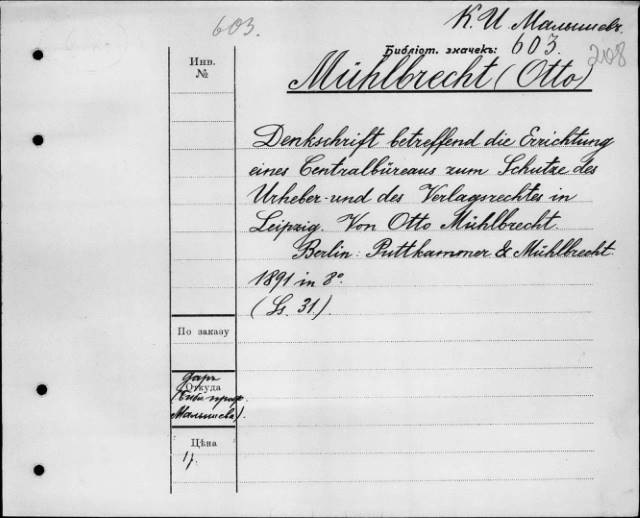 603.
К. И. Малышев.
Библіот. значекъ: 603.
208
Инв.
№
Mühlbrecht (Otto)
Denkschrift betreffend die Errichtung
eines Centralbüreaus zum Schutze des
Urheber- und des Verlagsrechtes in
Leipzig. Von Otto Mühlbrecht.
Berlin: Puttkammer & Mühlbrecht.
1891 in 8°.
(Ss. 31).
По заказу
Даръ
Откуда
(Библ. проф.
Малышева).
Цѣна